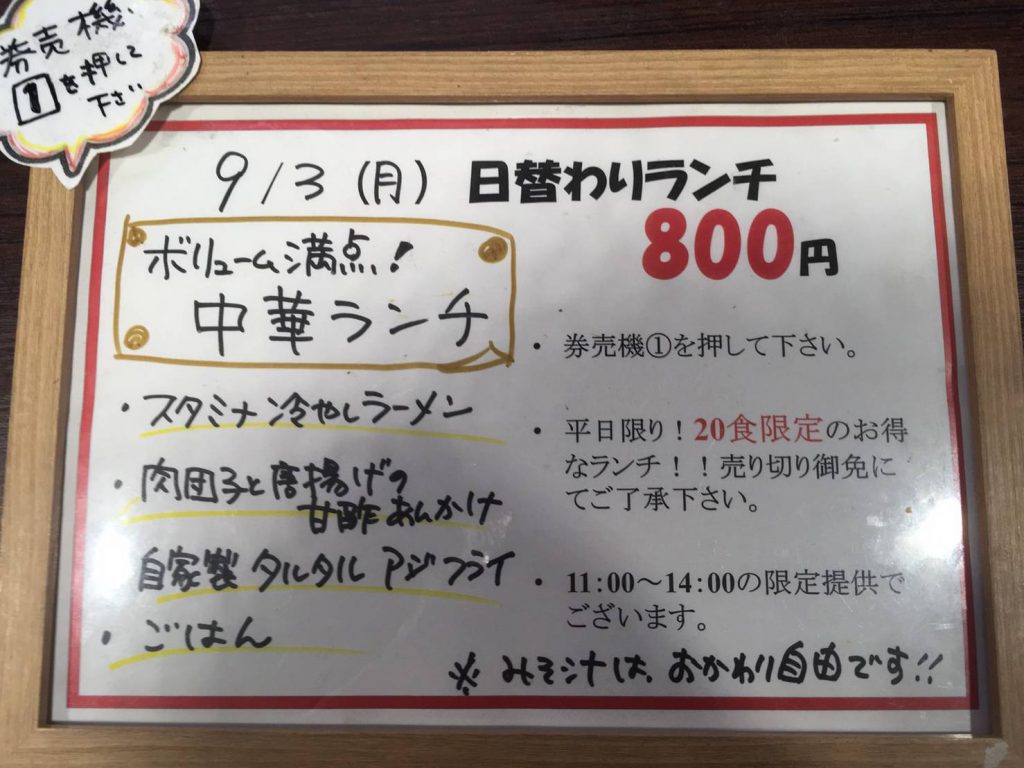 券売機
1を押して
下さい
9/3(月) 日替わりランチ
800円
ボリューム満点!
中華ランチ
・スタミナ冷やしラーメン
・肉団子と唐揚げの
甘酢あんかけ
自家製タルタルアジフライ
・ごはん
・ 券売機①を押して下さい。
・ 平日限り!20食限定のお得
なランチ!!売り切り御免に
てご了承下さい。
・ 11:00～14:00の限定提供で
ございます。
※みそ汁は、おかわり自由です!!